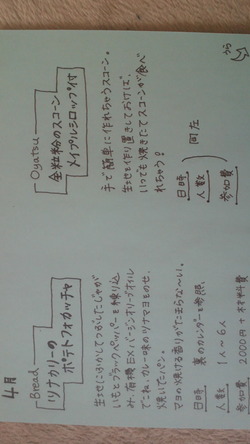 4月
Bread
ツナカリーの
ポテトフォカッチャ
生地にふかしてつぶしたじゃが
いもとブラックペッパーを練り込
み、有機EXバージンオリーブオイル
でこね、カレー味のツナマヨをのせ、
焼いたパン。
マヨの焼ける香りがたまらな〜い。
日時 裏のカレンダーを参照。
人数 1人〜6人
参加費 2000円+材料費
Oyatsu
全粒粉のスコーン
メイプルシロップ付
手で簡単に作れちゃうスコーン。
生地を作り置きしておけば、
いつでも焼きたてスコーンが食べ
れちゃう!
日時
人数
参加費
同左
うら